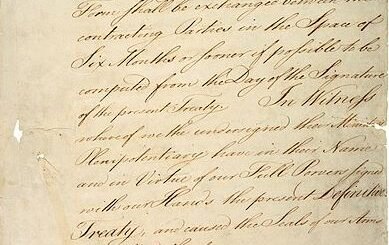 Form shall be exchanged between the
contracting Parties in the Space of
Six Months or sooner if possible to be
computed from the Day of the Signature
of the present Treaty. In Witness
whereof we the undersigned their Ministers
Plenipotentiary have in their Name
and in Virtue of our Full Powers signed
with our Hands the present Definitive
Treaty, and caused the Seals of our Arms